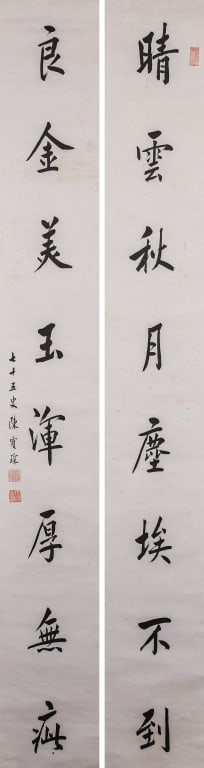 晴雲秋月塵埃不到
良金美玉渾厚無疵
七十五叟陳寶琛